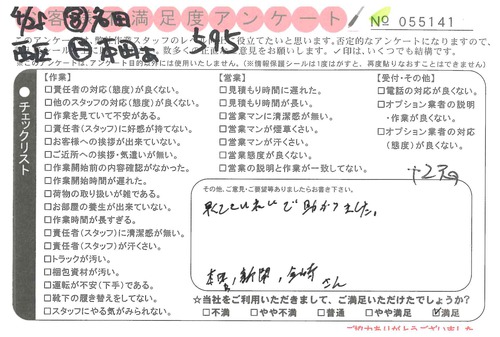 お客様満足度アンケート
№ 055141
このアンケートは、弊社作業スタッフのレベル向上に役立てたいと思います。否定的なアンケートになりますので、
ご意見をお願いします。✓印は、いくつでも結構です。
※このアンケートは、アンケート目的以外には使用いたしません。(※情報保護シールは1度はがすと、再度貼りなおすことはできません)
チェックリスト
【作業】
□責任者の対応(態度)が良くない。
□他のスタッフの対応(態度)が良くない。
□作業を見ていて不安がある。
□責任者(スタッフ)に好感が持てない。
□お客様への挨拶が出来ていない。
□ご近所への挨拶・気遣いが無い。
□作業開始前の内容確認がなかった。
□作業開始時間が遅れた。
□荷物の取り扱いが雑である。
□お部屋の養生が出来ていない。
□作業時間が長すぎる。
□責任者(スタッフ)に清潔感が無い。
□責任者(スタッフ)が汗くさい。
□トラックが汚い。
□梱包資材が汚い。
□運転が不安(下手)である。
□靴下の履き替えをしてない。
□スタッフにやる気がみられない。
【営業】
□見積もり時間に遅れた。
□見積もり時間が長い。
□営業マンに清潔感が無い。
□営業マンが煙草くさい。
□営業マンが汗くさい。
□営業態度が良くない。
□営業の説明と作業が一致してない。
【受付・その他】
□電話の対応が良くない。
□オプション業者の説明
・作業が良くない。
□オプション業者の対応
(態度)が良くない。
その他、ご意見・ご要望等ありましたらお書き下さい。
早くていねいで助かりました。
さん
☆当社をご利用いただきまして、ご満足いただけたでしょうか?
□不満 □やや不満 □普通 □やや満足 ☑満足
ご協力ありがとうございました